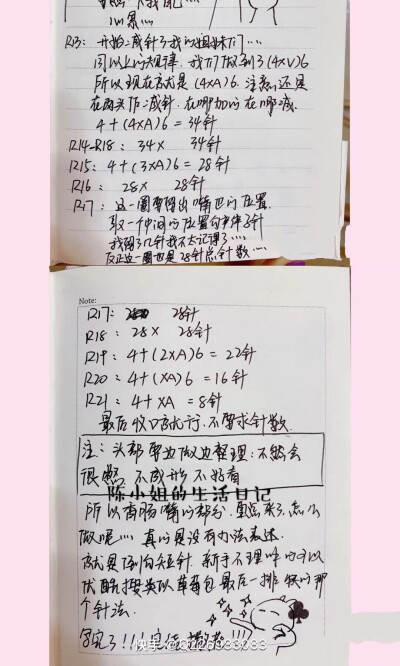 心累....
R13: 开始减针了我的姐妹们....
同以上的规律.我们做到了(4xV)6
所以现在就是(4xA)6.注意,还是
在两头作减针.在哪加的在哪减.
4+(4xA)6=34针
R14-R18: 34X 34针
R15: 4+(3xA)6=28针
R16 28X 28针
R17: 这一圈要留出嘴巴的位置.
取一个中间的位置
我留了几针我不太记得了....
反正这一圈也是28针总针数....
Note:
R17: 28针
R18: 28X 28针
R19: 4+(2xA)6=22针
R20: 4+(XA)6=16针
R21: 4+XA=8针
最后收口就行.不要求针数.
注:头部要边做边整理:不然会
很憨 不成形 不好看
陈小姐的生活日记
所以香肠嘴的部分.重点来了.怎么
做呢.... 真的是没有办法表述.
就是倒勾短针.新手不理解的可以
去酷搜类似草莓包最后一排 的那
个针法.
写完了!!! 完结撒花!!!
快手